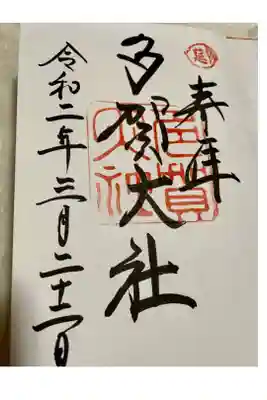 奉拝
多賀大社
多賀
大社
令和二年三月二十二日